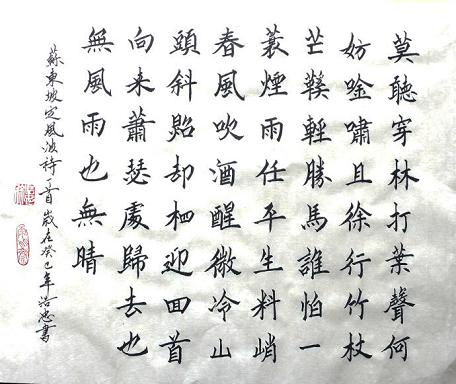 莫聽穿林打葉聲何
妨唫嘯且徐行竹杖
芒鞵輕勝馬誰怕一
蓑煙雨任平生料峭
春風吹酒醒微冷山
頭斜炤却相迎回首
向来蕭瑟處歸去也
無風雨也無晴
蘇東坡定風波詩一首 歲在癸巳年浩忠書